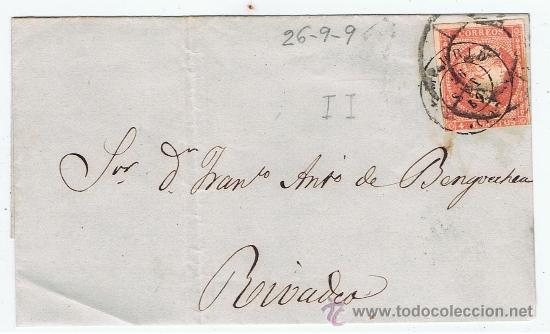 26-9-9
CORREOS
II
Sor. Dn. Franco Anto de Bengoechea
Rivadeo
www.todocoleccion.net